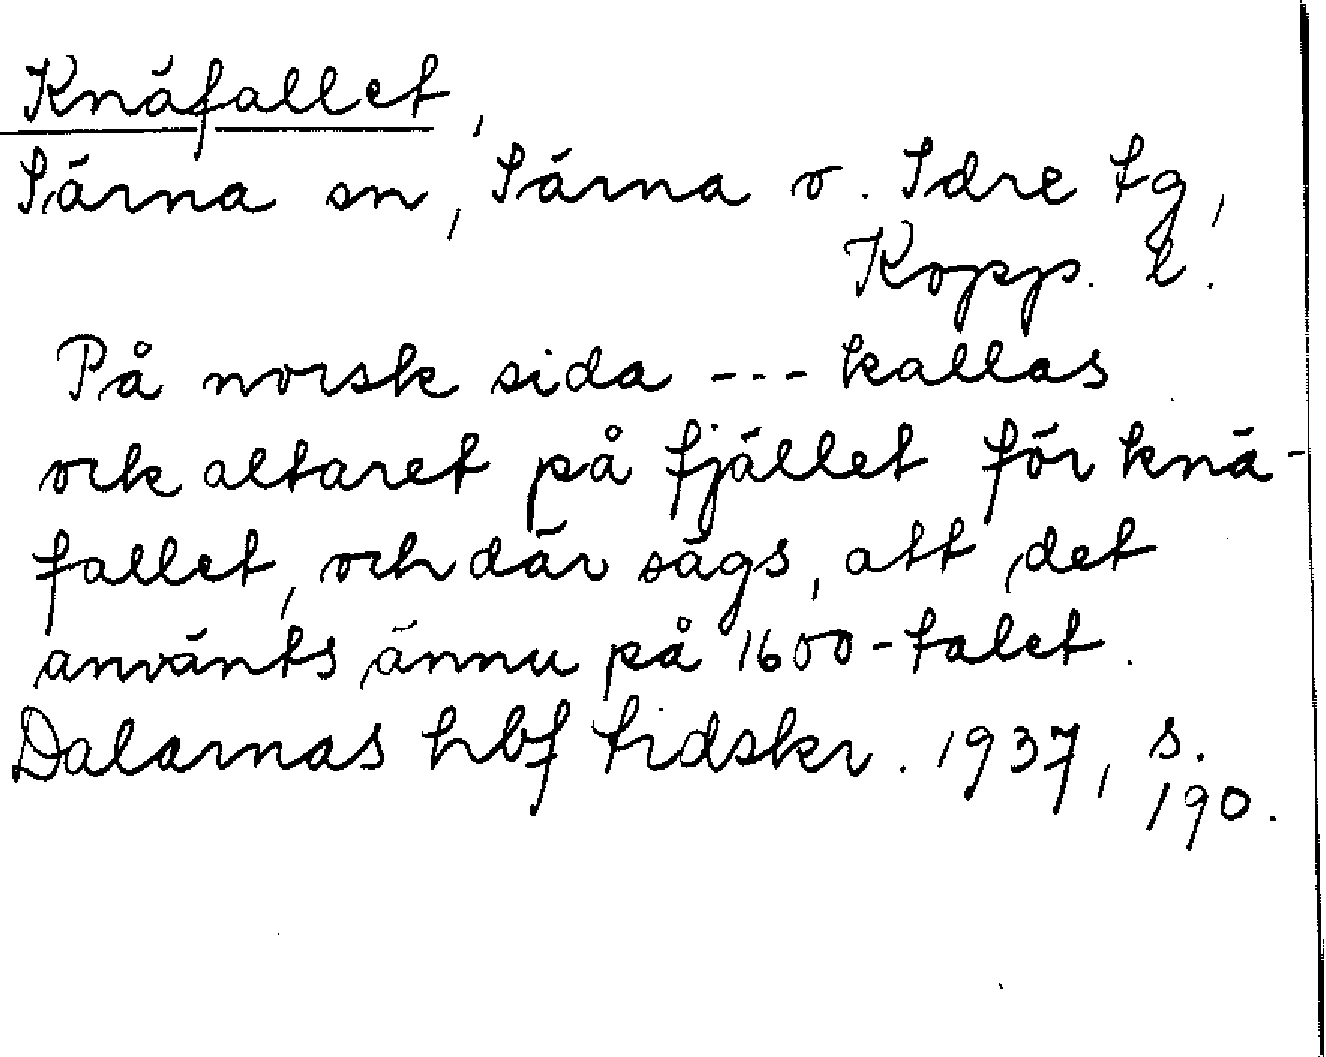 Knäfallet,
Särna sn, Särna o. Idre tg,
Kopp. l.
På norsk sida --- kallas
ock altaret på fjället för knä-
fallet, och där sägs, att det
använts ännu på 1600-talet.
Dalarnas hbf tidskr. 1937, s.
190.